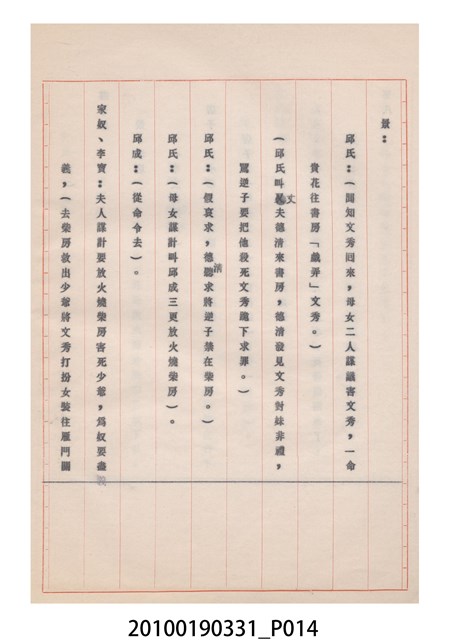 景：
邱氏：（聞知文秀囘來，母女二人謀議害文秀，一命
貴花往書房「戲弄」文秀。）
（邱氏叫丈夫德清來書房，德清發見文秀對妹非禮，
罵逆子要把他殺死文秀跪下求罪。）
邱氏：（假哀求，德清聽求將逆子禁在柴房。）
邱氏：（母女謀計叫邱成三更放火燒柴房）。
邱成：（從命令去）。
家奴、李寶：夫人謀計要放火燒柴房害死少爺，爲奴要盡
義，（去柴房救出少爺將文秀打扮女裝往雁門關
20100190331_P014